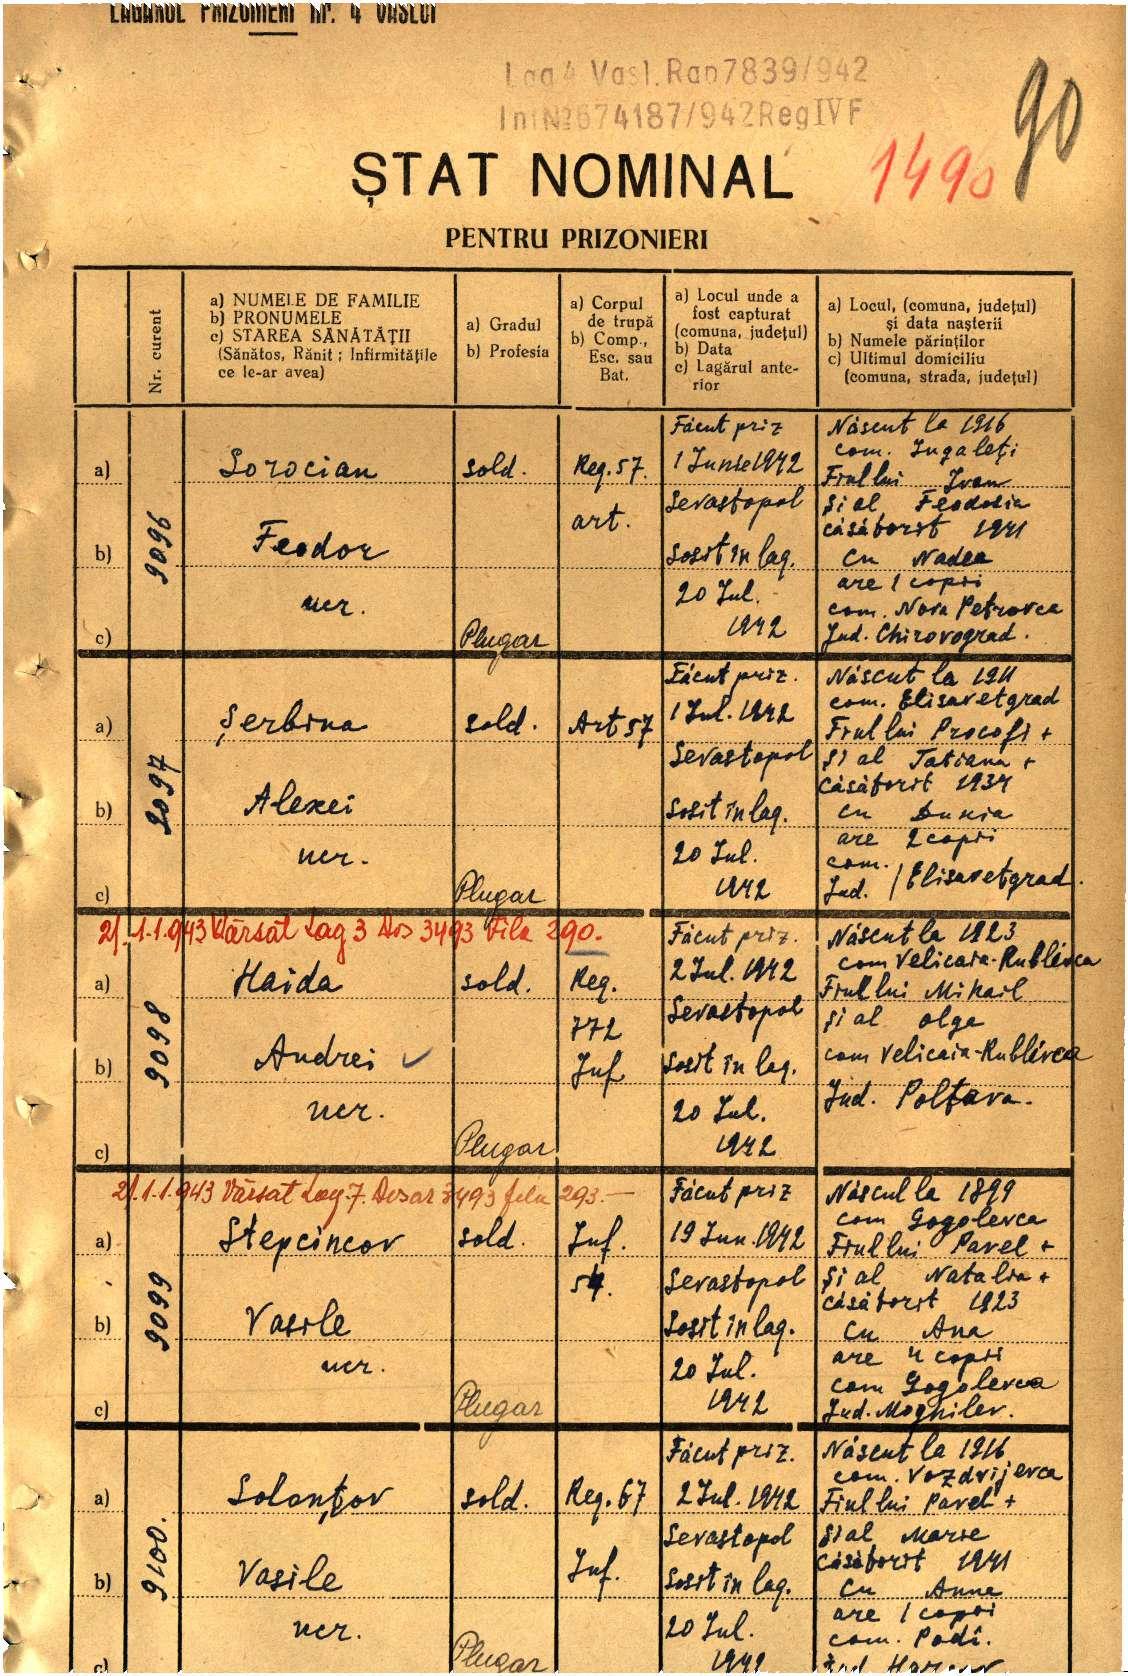 LAGĂRUL PRIZONIERI nr. 4 VASLUI
Lag 4 Vasl. Rap 7839/942
Int № 674187/942 Reg IV F
90
1490
ȘTAT NOMINAL
PENTRU PRIZONIERI
Nr. curent
a) NUMELE DE FAMILIE
b) PRONUMELE
c) STAREA SĂNĂTĂȚII
(Sănătos, Rănit ; Infirmitățile
ce le-ar avea)
a) Gradul
b) Profesia
a) Corpul
de trupă
b) Comp.,
Esc. sau
Bat.
a) Locul unde a
fost capturat
(comuna, județul)
b) Data
c) Lagărul ante-
rior
a) Locul, (comuna, județul)
și data nașterii
b) Numele părinților
c) Ultimul domiciliu
(comuna, strada, județul)
9096
a) Sorocian
b) Feodor
ucr.
c)
sold.
Plugar
Reg. 57.
art.
Făcut priz
1 Iunie 1942
Sevastopol
Sosit în lag.
20 Iul.
1942
Născut la 1916
com. Ingaleți
Fiul lui Ivan
și al Feodosia
căsătorit 1941
cu Nadea
are 1 copii
com. Nova Petrovca
Jud. Chirovograd.
9097
a) Șerbina
b) Alexei
ucr.
c)
sold.
Plugar
Art 57
Făcut priz.
1 Iul. 1942
Sevastopol
Sosit în lag.
20 Iul.
1942
Născut la 1911
com. Elisavetgrad
Fiul lui Procofi +
și al Tatiana +
căsătorit 1934
cu Dunia
are 2 copii
com.
Jud. / Elisavetgrad.
21.1.1943 Vărsat Lag 3 Dos 3493 Fila 290.
9098
a) Haida
b) Andrei
ucr.
c)
sold.
Plugar
Reg.
772
Inf
Făcut priz.
2 Iul. 1942
Sevastopol
Sosit în lag.
20 Iul.
1942
Născut la 1923
com Velicaia-Rublevca
Fiul lui Mihail
și al Olga
com Velicaia-Rublevca
Jud. Poltava.
21.1.1943 Vărsat Lag 7. Dosar 3493 fila 293.—
9099
a) Stepcincov
b) Vasile
ucr.
c)
sold.
Plugar
Inf.
54.
Făcut priz
19 Iun. 1942
Sevastopol
Sosit în lag.
20 Iul.
1942
Născut la 1899
com Gogolevca
Fiul lui Pavel +
și al Natalia +
căsătorit 1923
cu Ana
are 4 copii
com Gogolevca
Jud. Moghilev.
9100.
a) Solonțov
b) Vasile
ucr.
c)
sold.
Plugar
Reg. 67
Inf.
Făcut priz.
2 Iul. 1942
Sevastopol
Sosit în lag.
20 Iul.
1942
Născut la 1916
com. Vozdvijevca
Fiul lui Pavel +
și al Marie
căsătorit 1941
cu Anna
are 1 copii
com. Podi.
Jud. Harcov